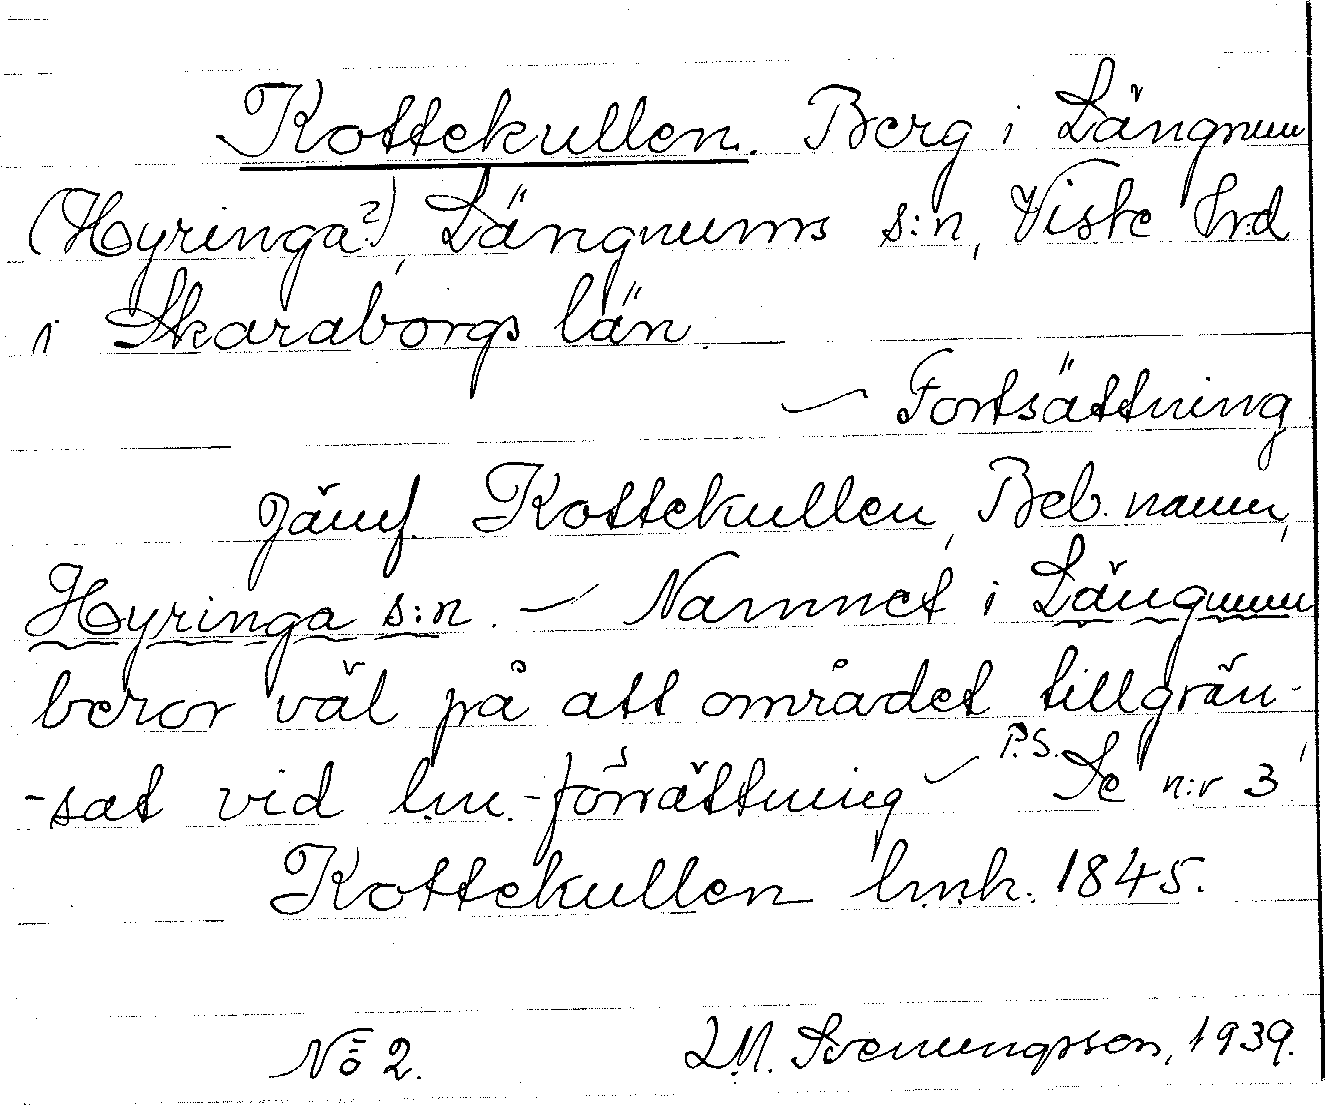 Kottekullen. Berg i Längnum
(Hyringa?), Längnums s:n, Viste hrd
i Skaraborgs län.
— Fortsättning
Jämf. Kottekullen, Beb. namn,
Hyringa s:n. — Namnet i Längnum
beror väl på att området tillgrän-
-sat vid lm.-förrättning — P.S. Se n:r 3
Kottekullen lmh. 1845.
No 2. L.M. Svenungsson, 1939.